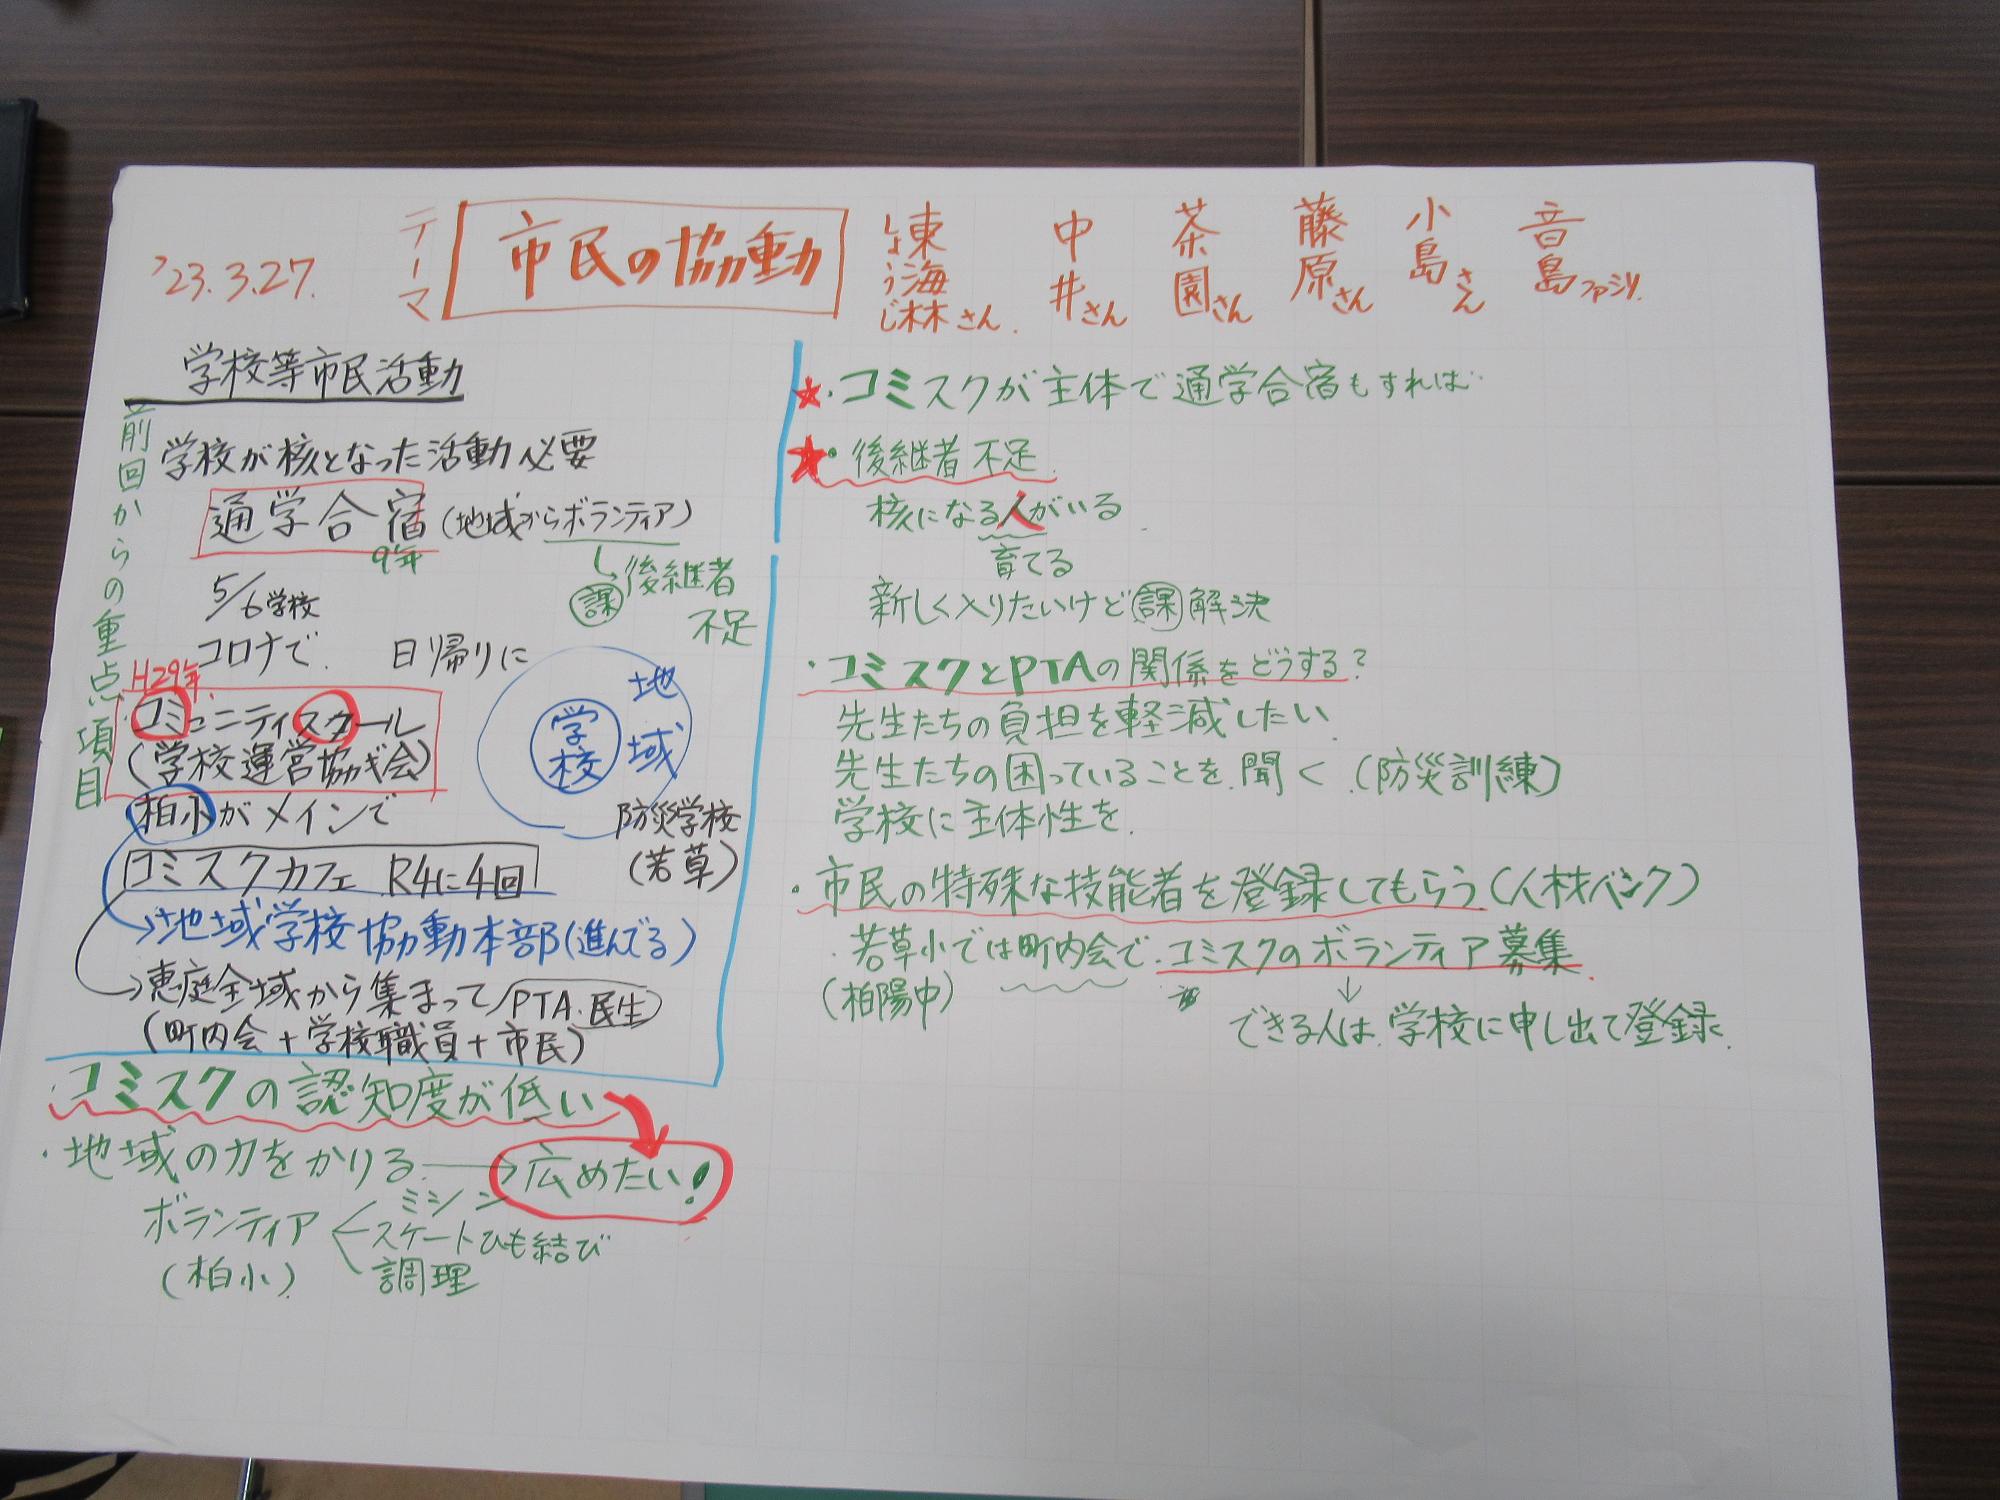 '23.3.27.
テーマ
市民の協動
東海林さん
しょうじ
中井さん
茶園さん
藤原さん
小島さん
音島ファシリ.
学校等市民活動
前回からの重点項目
学校が核となった活動必要
通学合宿(地域からボランティア)
9年
課 後継者
不足
5/6学校
コロナで. 日帰りに
H29年.
コミュニティスクール
(学校運営協ギ会)
学校
地域
柏小がメインで
防災学校
(若草)
コミスクカフェ R4に4回
→地域学校協動本部(進んでる)
→恵庭全域から集まって PTA.民生
(町内会+学校職員+市民)
・コミスクの認知度が低い
・地域の力をかりる→広めたい!
ボランティア
(柏小)
ミシン
スケートひも結び
調理
★・コミスクが主体で通学合宿もすれば…
★・後継者不足.
核になる人がいる.
育てる
新しく入りたいけど課解決
・コミスクとPTAの関係をどうする?
先生たちの負担を軽減したい.
先生たちの困っていることを.聞く.(防災訓練)
学校に主体性を.
・市民の特殊な技能者を登録してもらう(人材バンク)
・若草小では町内会で.コミスクのボランティア募集
(柏陽中)
↓
できる人は.学校に申し出て登録.